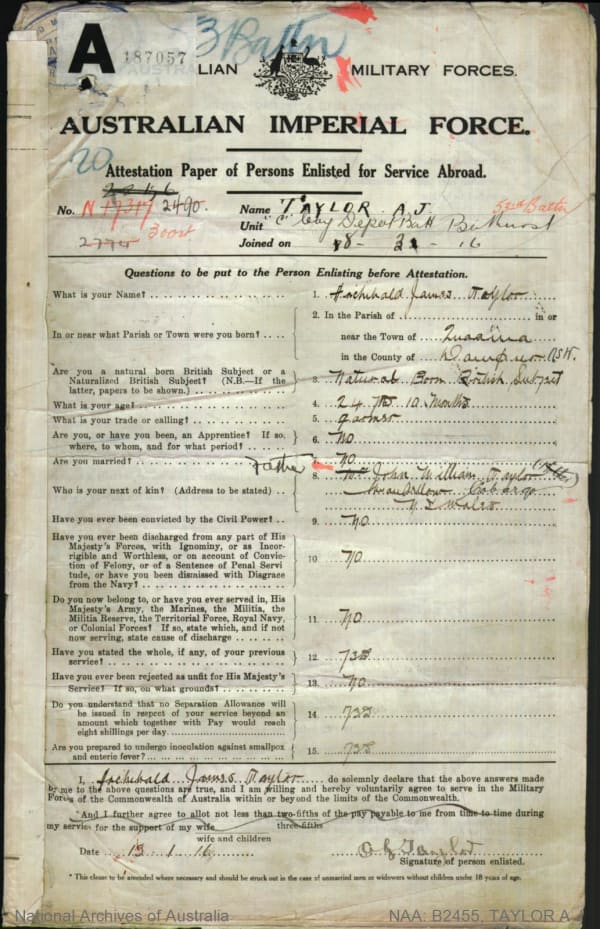 A
187057
3 Battn
LIAN MILITARY FORCES.
AUSTRALIAN IMPERIAL FORCE.
20
Attestation Paper of Persons Enlisted for Service Abroad.
No. N 17317 2490.
Name TAYLOR A.J.
53rd Battn
Unit "C" Coy Depot Batt Bathurst
Joined on
Questions to be put to the Person Enlisting before Attestation.
What is your Name? 1. Archibald James Taylor
In or near what Parish or Town were you born? 2. In the Parish of in or
near the Town of Quaama
in the County of Dampier NSW.
Are you a natural born British Subject or a Naturalized British Subject? (N.B.—If the latter, papers to be shown.) 3. Natural Born British Subject
What is your age? 4. 24 Yrs 10 Months
What is your trade or calling? 5. Farmer
Are you, or have you been, an Apprentice? If so, where, to whom, and for what period? 6. No
Are you married? No
Father
Who is your next of kin? (Address to be stated) 8. John William Taylor
Cobargo
N. S Wales
Have you ever been convicted by the Civil Power? 9. No
Have you ever been discharged from any part of His Majesty's Forces, with Ignominy, or as Incorrigible and Worthless, or on account of Conviction of Felony, or of a Sentence of Penal Servitude, or have you been dismissed with Disgrace from the Navy? 10 No
Do you now belong to, or have you ever served in, His Majesty's Army, the Marines, the Militia, the Militia Reserve, the Territorial Force, Royal Navy, or Colonial Forces? If so, state which, and if not now serving, state cause of discharge 11. No
Have you stated the whole, if any, of your previous service? 12. Yes
Have you ever been rejected as unfit for His Majesty's Service? If so, on what grounds? 13. No
Do you understand that no Separation Allowance will be issued in respect of your service beyond an amount which together with Pay would reach eight shillings per day. 14. Yes
Are you prepared to undergo inoculation against smallpox and enteric fever? 15. Yes
I, Archibald James Taylor do solemnly declare that the above answers made
by me to the above questions are true, and I am willing and hereby voluntarily agree to serve in the Military
Forces of the Commonwealth of Australia within or beyond the limits of the Commonwealth.
*And I further agree to allot not less than two-fifths of the pay payable to me from time to time during
three-fifths
my service for the support of my wife
wife and children
Date 13.1.16 A J Taylor
Signature of person enlisted.
* This clause to be amended where necessary and should be struck out in the case of unmarried men or widowers without children under 18 years of age.
National Archives of Australia NAA: B2455, TAYLOR A J